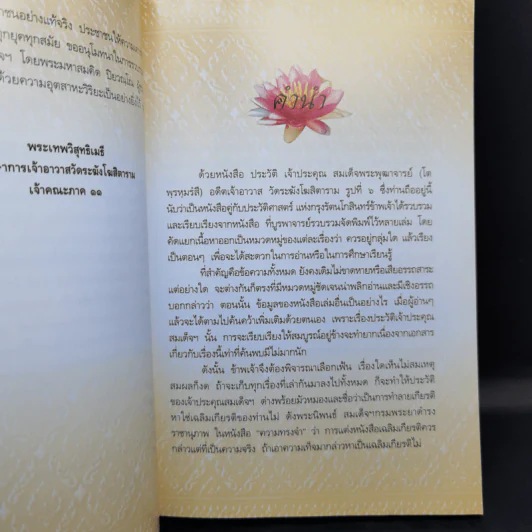 าชนอย่างแท้จริง ประชาชนให้ความเคา
ุกยุคทุกสมัย ขออนุโมทนาในการรวบ
จฯ โดยพระมหาสมคิด
ด้วยความอุตสาหะวิริยะเป็นอย่างยิ่งไว้
พระเทพวิสุทธิเมธี
าการเจ้าอาวาสวัดระฆังโฆสิตาราม
เจ้าคณะภาค ๑๑
คำนำ
ด้วยหนังสือ ประวัติ เจ้าประคุณ สมเด็จพระพุฒาจารย์ (โต
พฺรหฺมรํสี) อดีตเจ้าอาวาส วัดระฆังโฆสิตาราม รูปที่ ๖ ซึ่งท่านถืออยู่นี้
นับว่าเป็นหนังสือคู่กับประวัติศาสตร์ แห่งกรุงรัตนโกสินทร์ข้าพเจ้าได้รวบรวม
และเรียบเรียงจากหนังสือ ที่บูรพาจารย์รวบรวมจัดพิมพ์ไว้หลายเล่ม โดย
คัดแยกเนื้อหาออกเป็นหมวดหมู่ของแต่ละเรื่องว่า ควรอยู่กลุ่มใด แล้วเรียง
เป็นตอนๆ เพื่อจะได้สะดวกในการอ่านหรือในการศึกษาเรียนรู้
ที่สำคัญคือข้อความทั้งหมด ยังคงเดิมไม่ขาดหายหรือเสียอรรถสาระ
แต่อย่างใด จะต่างกันก็ตรงที่มีหมวดหมู่ชัดเจนน่าพลิกอ่านและมีเชิงอรรถ
บอกกล่าวว่า ตอนนั้น ข้อมูลของหนังสือเล่มอื่นเป็นอย่างไร เมื่อผู้อ่านๆ
แล้วจะได้ตามไปค้นคว้าเพิ่มเติมด้วยตนเอง เพราะเรื่องประวัติเจ้าประคุณ
สมเด็จฯ นั้น การจะเรียบเรียงให้สมบูรณ์อยู่ข้างจะทำยากเนื่องจากเอกสาร
เกี่ยวกับเรื่องนี้เท่าที่ค้นพบมีไม่มากนัก
ดังนั้น ข้าพเจ้าจึงต้องพิจารณาเลือกเฟ้น เรื่องใดเห็นไม่สมเหตุ
สมผลก็งด ถ้าจะเก็บทุกเรื่องที่เล่ากันมาลงไปทั้งหมด ก็จะทำให้ประวัติ
ของเจ้าประคุณสมเด็จฯ ด่างพร้อยมัวหมองและชื่อว่าเป็นการทำลายเกียรติ
หาใช่เฉลิมเกียรติของท่านไม่ ดังพระนิพนธ์ สมเด็จฯกรมพระยาดำรง
ราชานุภาพ ในหนังสือ "ความทรงจำ" ว่า การแต่งหนังสือเฉลิมเกียรติควร
กล่าวแต่ที่เป็นความจริง ถ้าเอาความเท็จมากล่าวหาเป็นเฉลิมเกียรติไม่